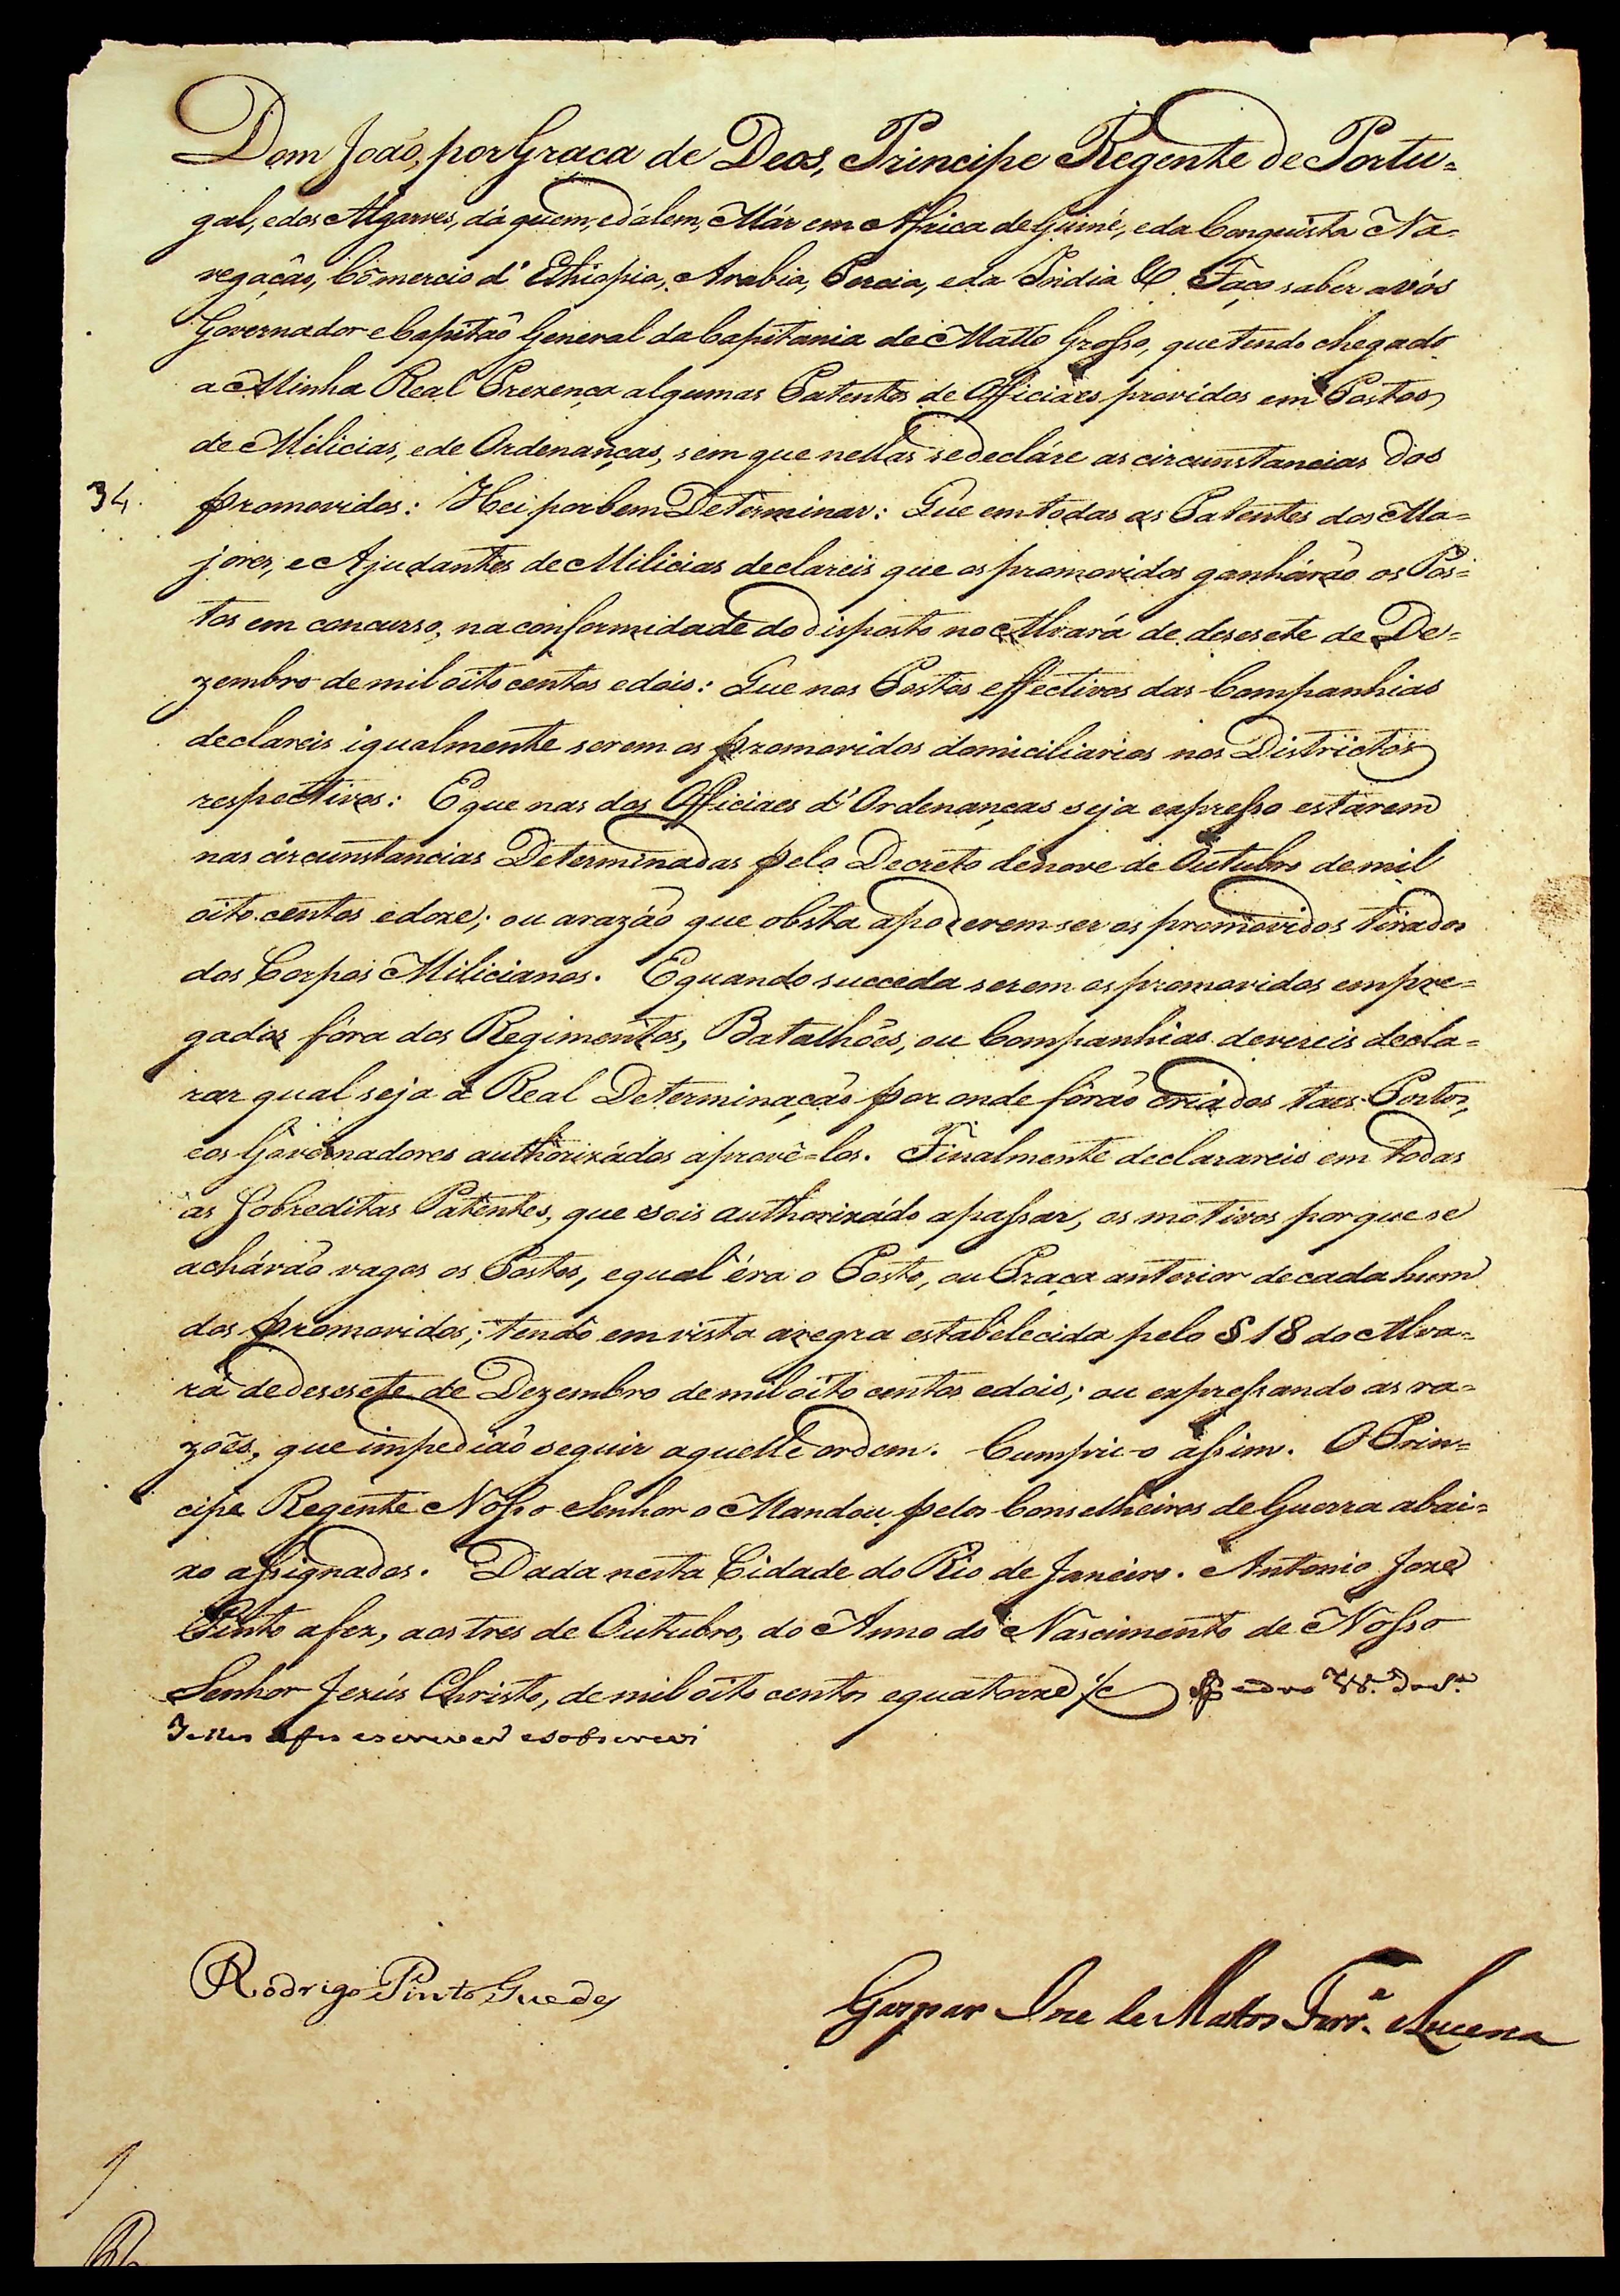 Dom João, por Graça de Deos, Principe Regente de Portu=
gal, e dos Algarves, dá quem, e dálem, Már em Africa de Guiné, e da Conquista Na-
vegação, Cõmercio d' Ethiopia, Arabia, Percia, e da India &c. Faço saber a vós
Governador e Capitão General da Capitania de Matto Grosso, que tendo chegado
a Minha Real Prezença algumas Patentes de Officiaes providos em Postos
de Milicias, e de Ordenanças, sem que nellas se decláre as circunstancias dos
34. promovidos: Hei por bem Determinar: Que em todas as Patentes dos Ma=
jores, e Ajudantes de Milicias declareis que os promovidos ganhárão os Pos=
tos em concurso, na conformidade do disposto no Alvará de desesete de De=
zembro de mil oito centos e dois: Que nos Postos effectivos das Companhias
declareis igualmente serem os promovidos domiciliarios nos Districtos
respectivos: E que nas dos Officiaes d'Ordenanças seja expresso estarem
nas circunstancias Determinadas pelo Decreto de nove de Outubro de mil
oito centos e doze; ou a razão que obsta a poderem ser os promovidos tirados
dos Corpos Milicianos. E quando succeda serem os promovidos empre=
gados fóra dos Regimentos, Batalhões, ou Companhias devereis decla=
rar qual seja a Real Determinação por onde fôrão criados taes Postos,
e os Governadores authorizádos a provê-los. Finalmente declarareis em todas
as Sobreditas Patentes, que sois authorizádo a passar, os motivos porque se
achárão vagos os Postos, e qual éra o Posto, ou Praça anterior de cada hum
dos promovidos; tendo em vista a regra estabelecida pelo § 18 do Alva=
rá de desesete de Dezembro de mil oito centos e dois; ou expressando as ra=
zões, que impedião seguir aquelle ordem. Cumpri-o assim. O Prin=
cipe Regente Nosso Senhor o Mandou pelos Conselheiros de Guerra abai=
xo assignados. Dada nesta Cidade do Rio de Janeiro. Antonio Jozé
Pinto a fez, aos tres de Outubro, do Anno do Nascimento de Nosso
Senhor Jezús Christo, de mil oito centos e quatorze
a fis escrever e sobscrevi
Rodrigo Pinto Guedes
Gaspar Joze de Matos Ferr.ª Lucena